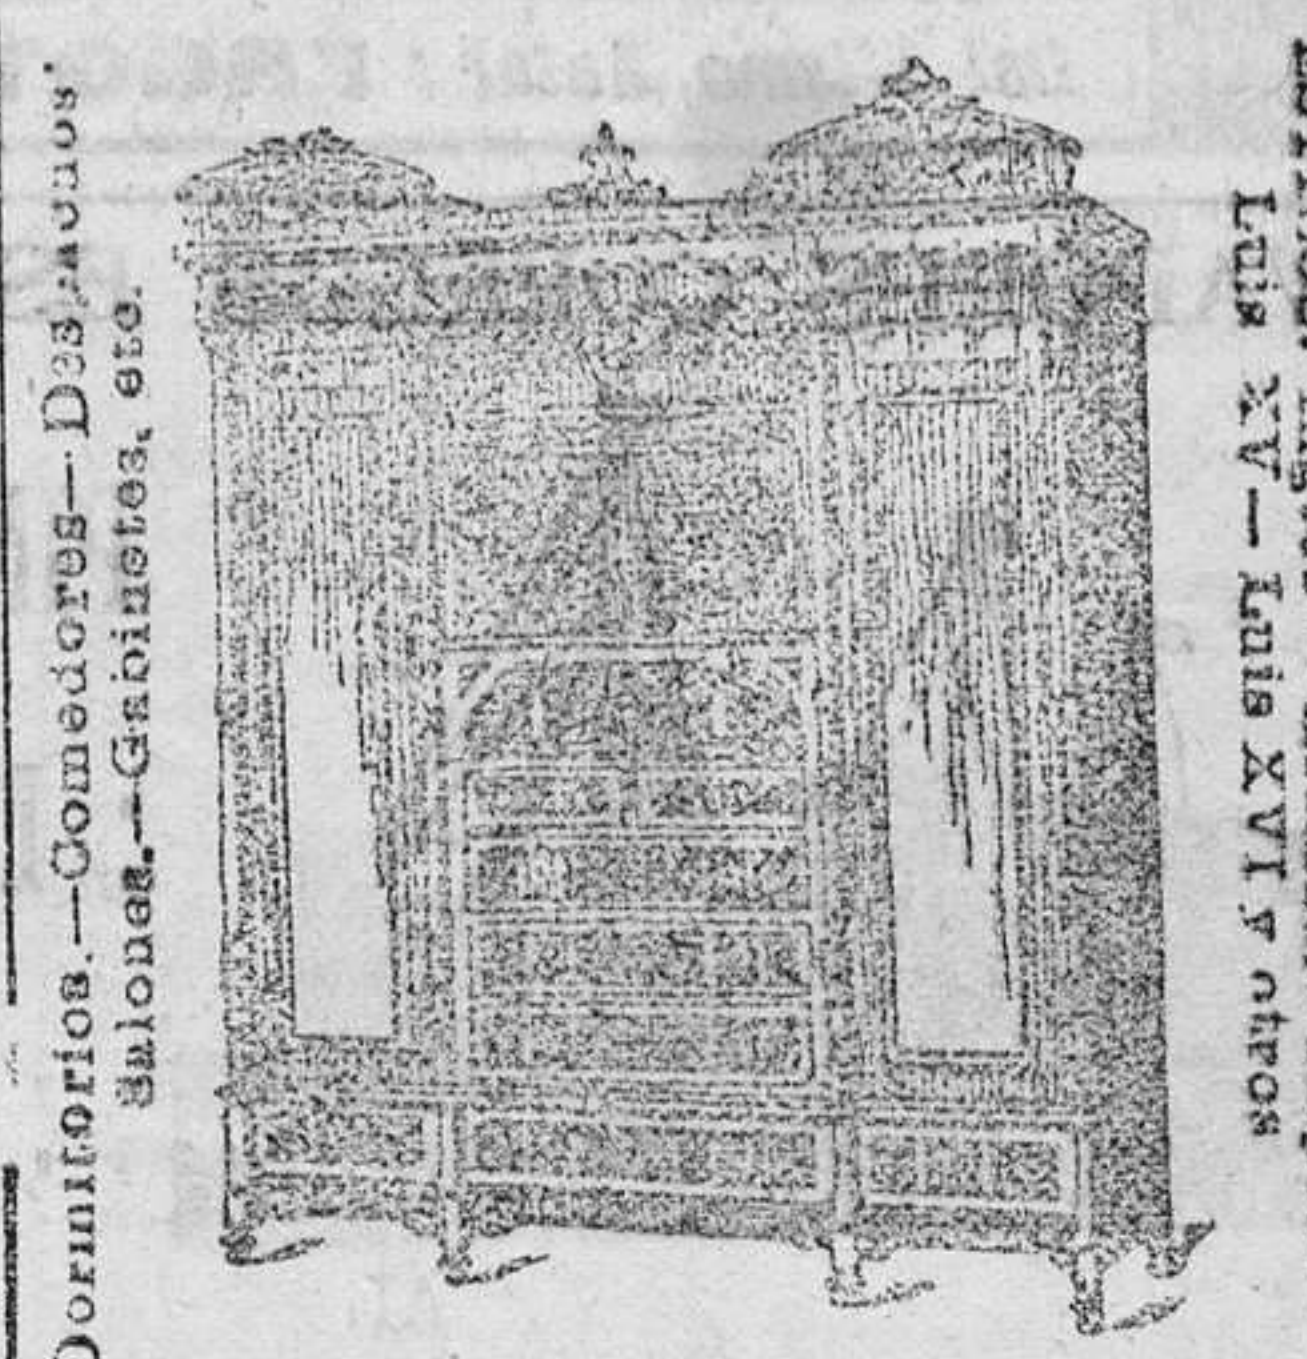 Dormitorios.—Comedores—Despachos
Salones.—Gabinetes, etc.
Luis XV—Luis XVI y otros